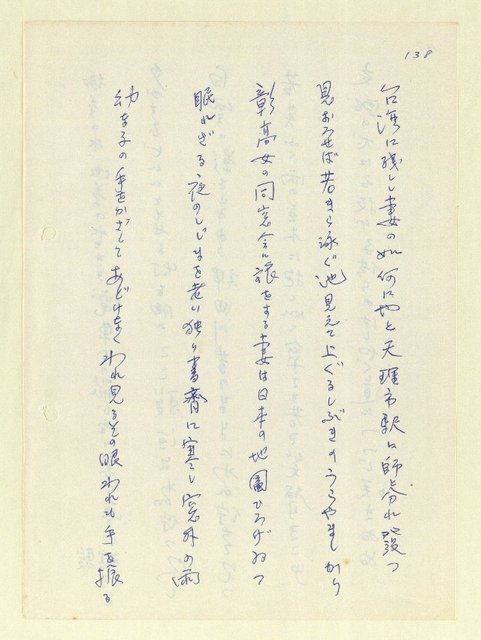 138
台湾に残しし妻の如何にやと天理市駅に師と分れ発つ
見おろせば若きら泳ぐ池見えて上ぐるしぶきのうらやましかり
彰高女の同窓会に旅をする妻は日本の地図ひろげゐつ
眠れざる夜のしじまを老い独り書斎に寒し窓外の雨
幼な子の手をかざしてあどけなくわれ見るその眼われも手を振る